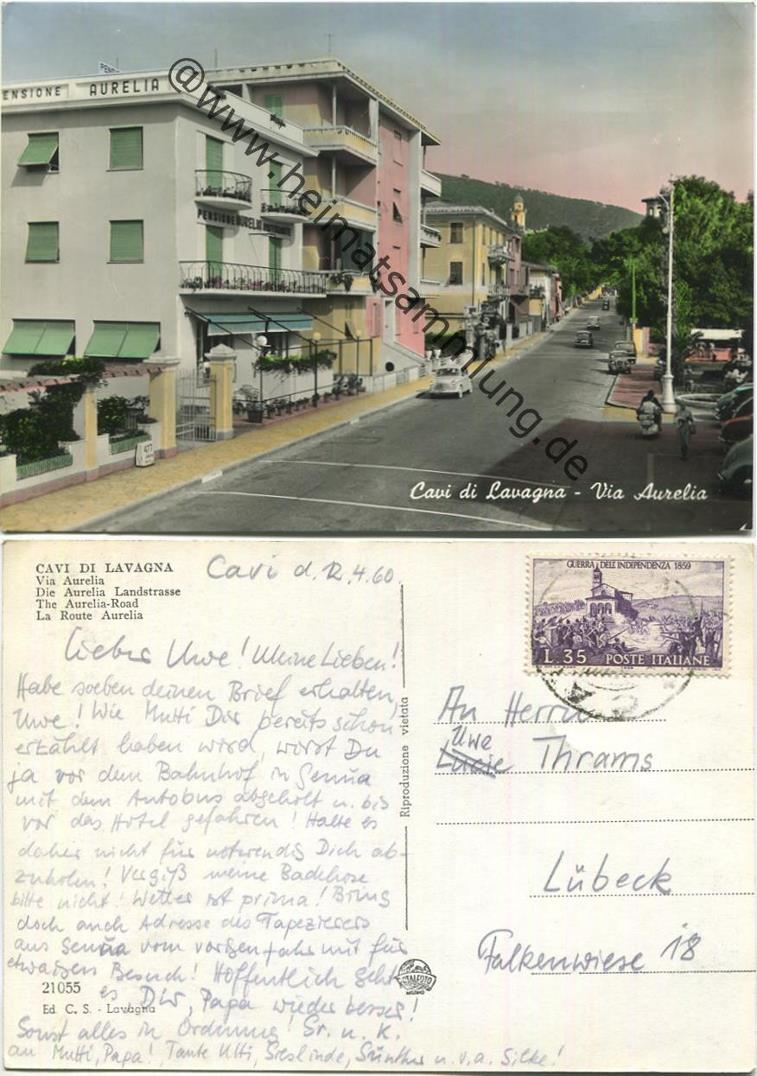 PENSIONE AURELIA
PENSIONE AURELIA RISTORANTE
477
@www.heimatsammlung.de
Cavi di Lavagna - Via Aurelia
CAVI DI LAVAGNA
Via Aurelia
Die Aurelia Landstrasse
The Aurelia-Road
La Route Aurelia
Cavi d. 12.4.60
Lieber Uwe! Meine Lieben!
Habe soeben deinen Brief erhalten,
Uwe! Wie Mutti Dir bereits schon
erzählt haben wird, wirst Du
ja vor dem Bahnhof in Genua
mit dem Autobus abgeholt u. bis
vor das Hotel gefahren! Halte es
daher nicht für notwendig Dich ab-
zuholen! Vergiß meine Badehose
bitte nicht! Wetter ist prima! Bring
doch auch Adresse des Tapezierers
aus Genua vom vorigen Jahr mit für
etwaigen Besuch! Hoffentlich geht
es Dir, Papa wieder besser!
Sonst alles in Ordnung! Gr. u. K.
an Mutti, Papa! Tante Ulti, Gieslinde, Günther u. v. a. Silke!
21055
Ed. C. S. - Lavagna
Riproduzione vietata
ITALFOTO
MILANO
GUERRA DELL'INDIPENDENZA 1859
L. 35 POSTE ITALIANE
An Herrn
Uwe
Lucie Thrams
Lübeck
Falkenwiese 18